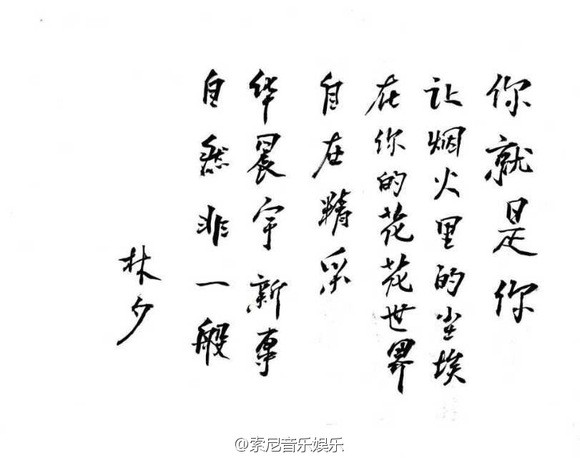 你就是你
让烟火里的尘埃
在你的花花世界
自在精采
华晨宇新专
自然非一般
林夕
@索尼音乐娱乐